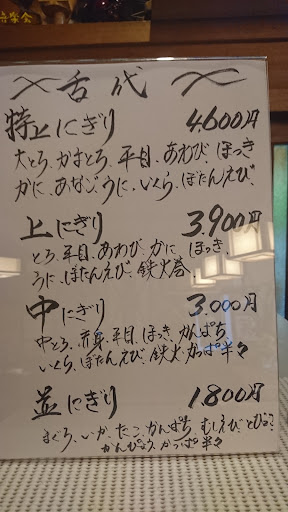 音楽会
舌代
特上にぎり 4.600円
大とろ、かまとろ、平目、あわび、ほっき
かに、あなご、うに、いくら、ぼたんえび、
上にぎり 3.900円
とろ、平目、あわび、かに、ほっき、
うに、ぼたんえび、鉄火巻、
中にぎり 3.000円
中とろ、赤身、平目、ほっき、かんぱち
いくら、ぼたんえび、鉄火、かっぱ半々
並にぎり 1.800円
まぐろ、いか、たこ、かんぱち、むしえび、とびこ
かんぴょう、かっぱ半々